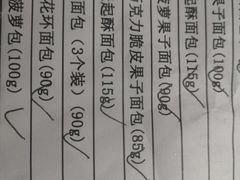 果子(100g)
起酥面包(115g)
菠萝果子面包(90g)
克力脆皮果子面包(85g)
起酥面包(115g)
面包(3个装)(90g)
花环面包(90g)
菠萝包(100g)